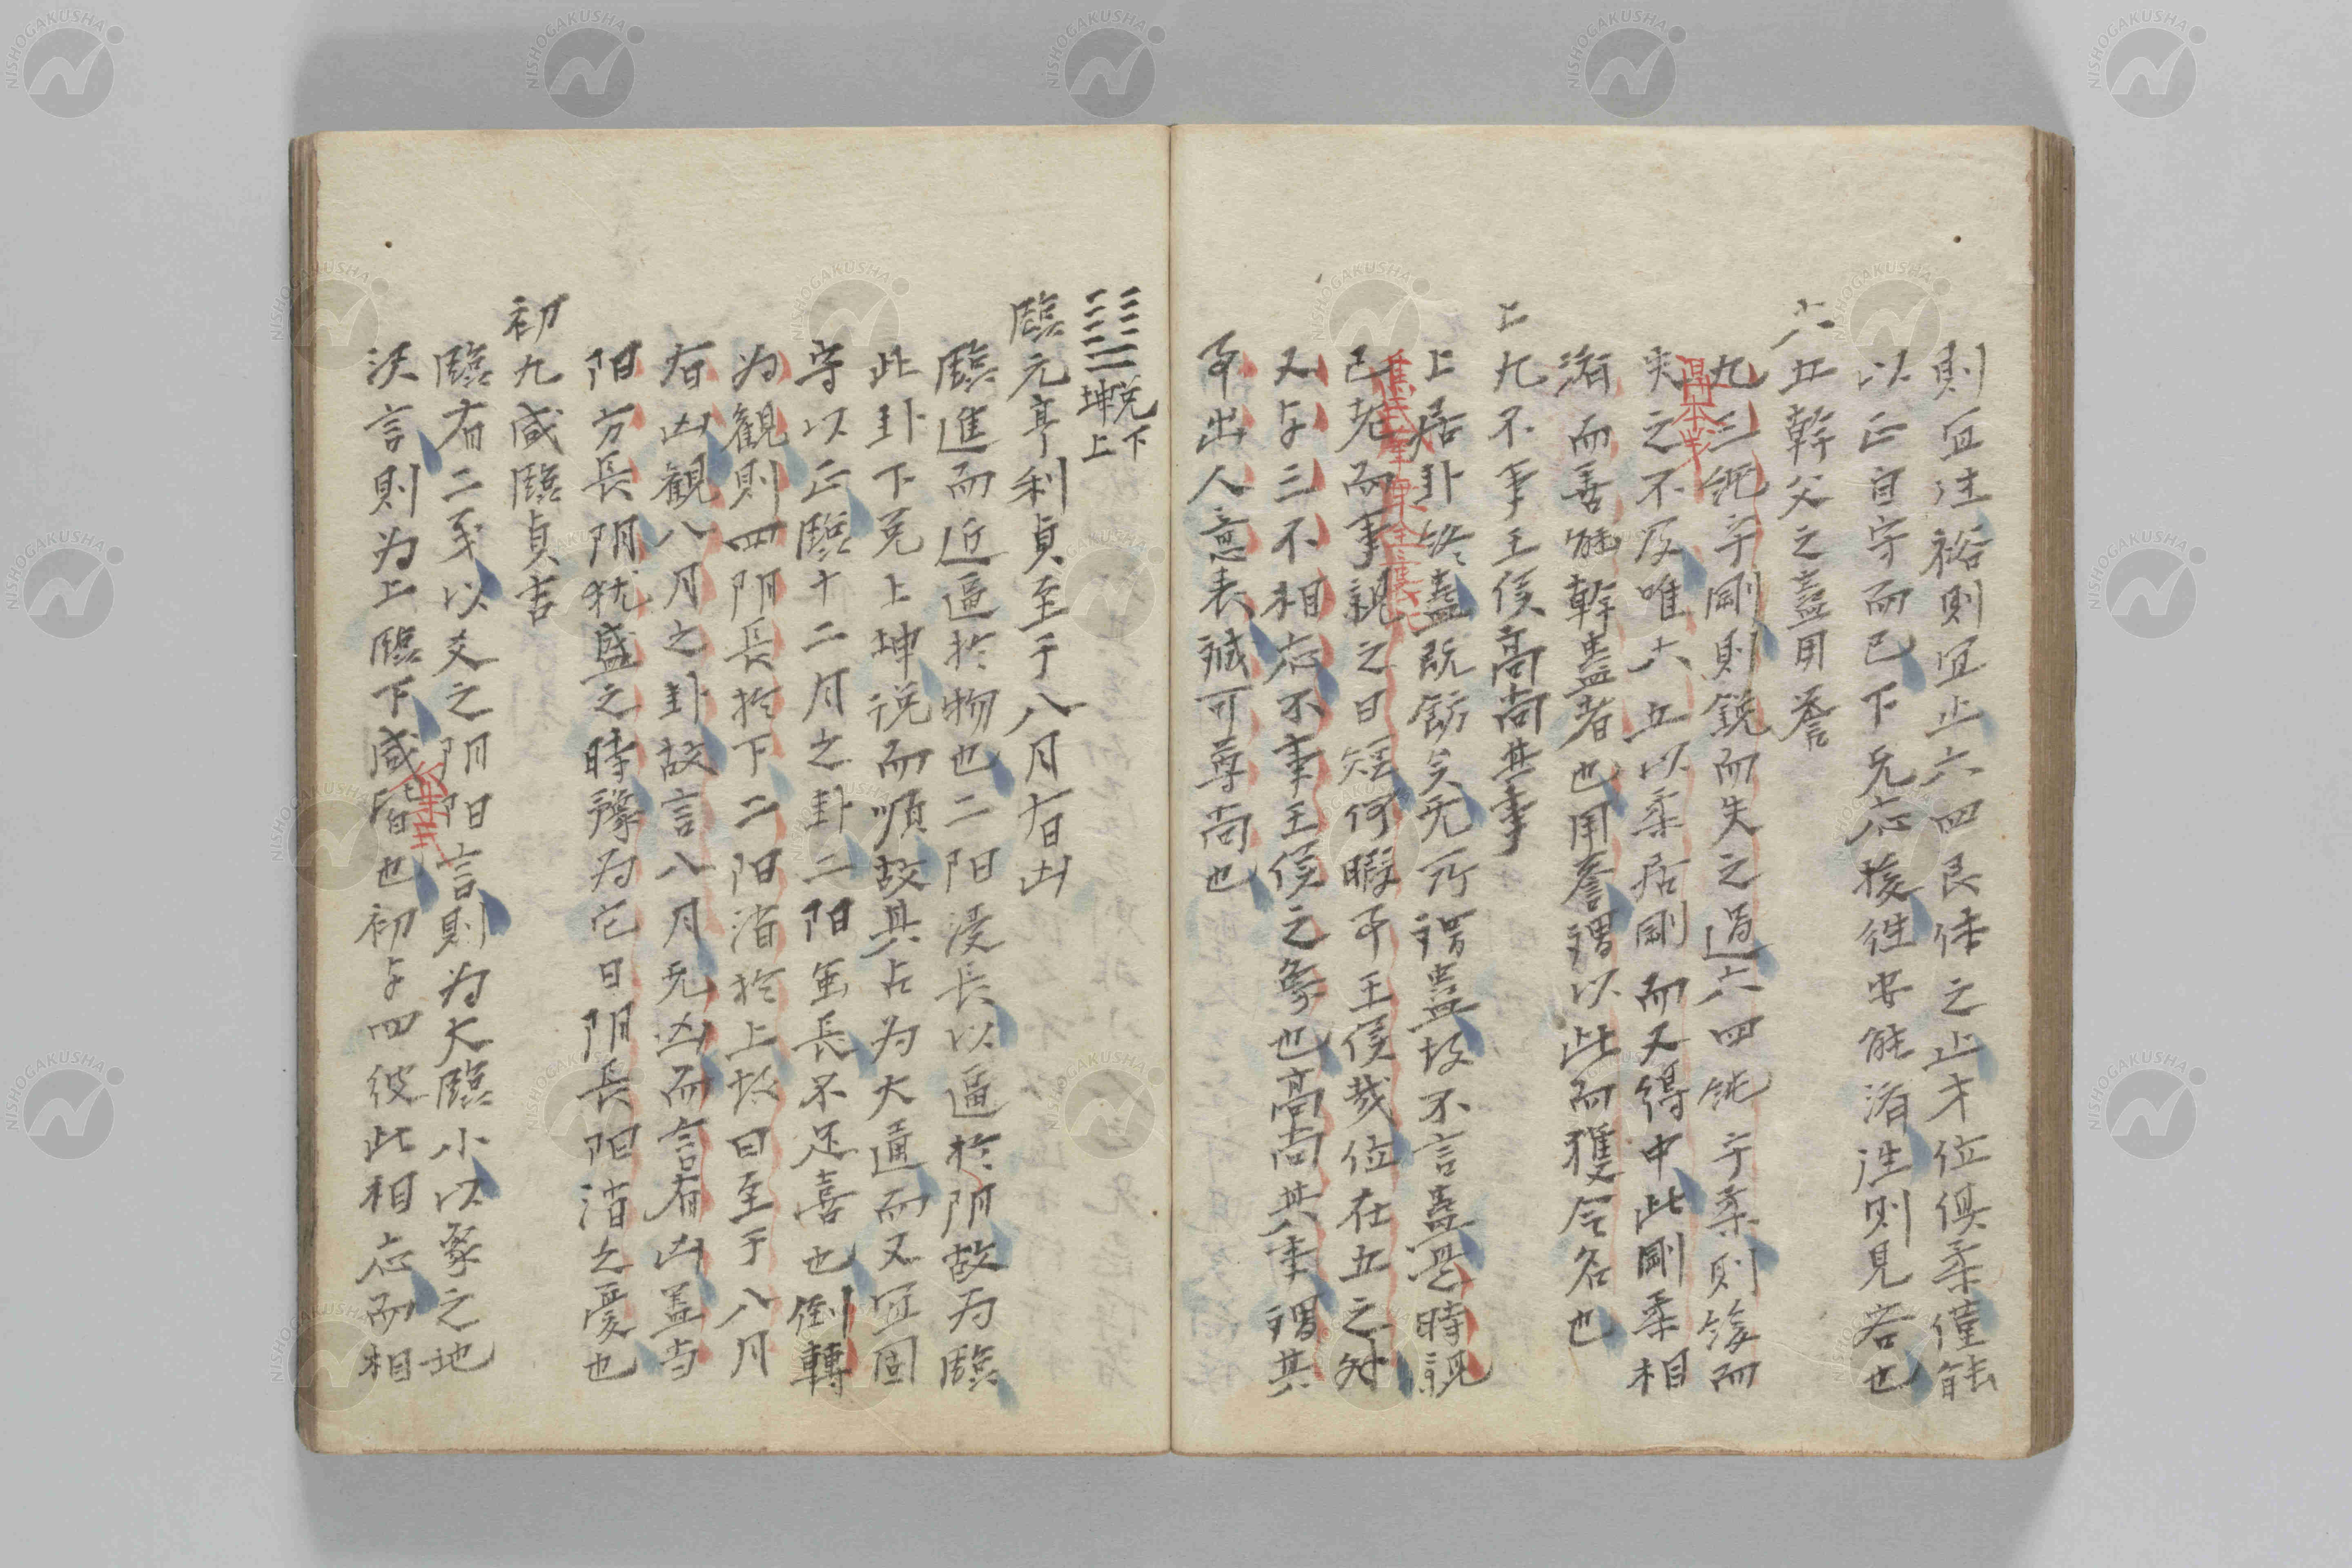 則宜往裕則宜止六四艮体之止才位俱柔僅能
以正自守而已下无応援往安能済往則見吝也
六五幹父之蠱用誉
九三純乎剛則鋭而失之過六四純乎柔則緩而
失之不及唯六五以柔居剛而又得中此剛柔相
済而善能幹蠱者也用誉謂以此而獲令名也
上九不事王侯高尚其事
上居卦終蠱既飭矣无所謂蠱故不言蠱是時親
已老而事親之日短何暇乎王侯哉位在五之外
又与三不相応不事王侯之象也高尚其事謂其
事出人意表誠可尊尚也
兌下
坤上
臨元亨利貞至于八月有凶
臨進而近逼於物也二陽浸長以逼於陰故为臨
此卦下兌上坤説而順故其占为大通而又宜固
守以正臨十二月之卦二陽虽長不足喜也倒轉
为観則四阴長於下二阳消於上故曰至于八月
有凶観八月之卦故言八月无凶而言有凶盖当
阳方長阴犹盛之時豫为它日阴長阳消之憂也
初九咸臨貞吉
臨有二義以爻之阴阳言則为大臨小以象之地
沢言則为上臨下咸皆也初与四彼此相応而相
NISHOGAKUSHA